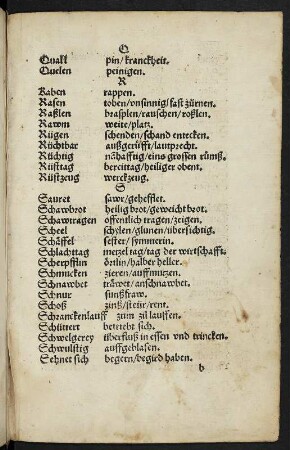 Q
Quall pin/kranckheit.
Quelen peinigen.
R
Raben rappen.
Rasen toben/vnsinnig/fast zürnen.
Raßlen brasplen/rauschen/roßlen.
Rawon weite/platz.
Rügen schenden/schand entecken.
Rüchtbar außgerüfft/lautprecht.
Rüchtig nåhafftig/eins grossen rümß.
Rüsttag bereittag/heiliger obent.
Rüstzeug werckzeug.
S
Sauret sawr/gehefflet.
Schawbrot heilig brot/geweicht brot.
Schawtragen öffenlich tragen/zeigen.
Scheel schylen/glunen/übersichtig.
Schäffel sester/symmerin.
Schlachttag metzel tag/tag der wirtschafft.
Scherpfflin örtlin/halber heller.
Schmucken zieren/auffmutzen.
Schnawbet tröwet/anschnawbet.
Schnur sunßfraw.
Schoß zinß/steür/rent.
Schranckenlauff zum zil lauffen.
Schüttert betrübt sich.
Schwelgerey überfluß in essen vnd trincken.
Schwulstig auffgeblasen.
Sehnet sich begern/begird haben.
b